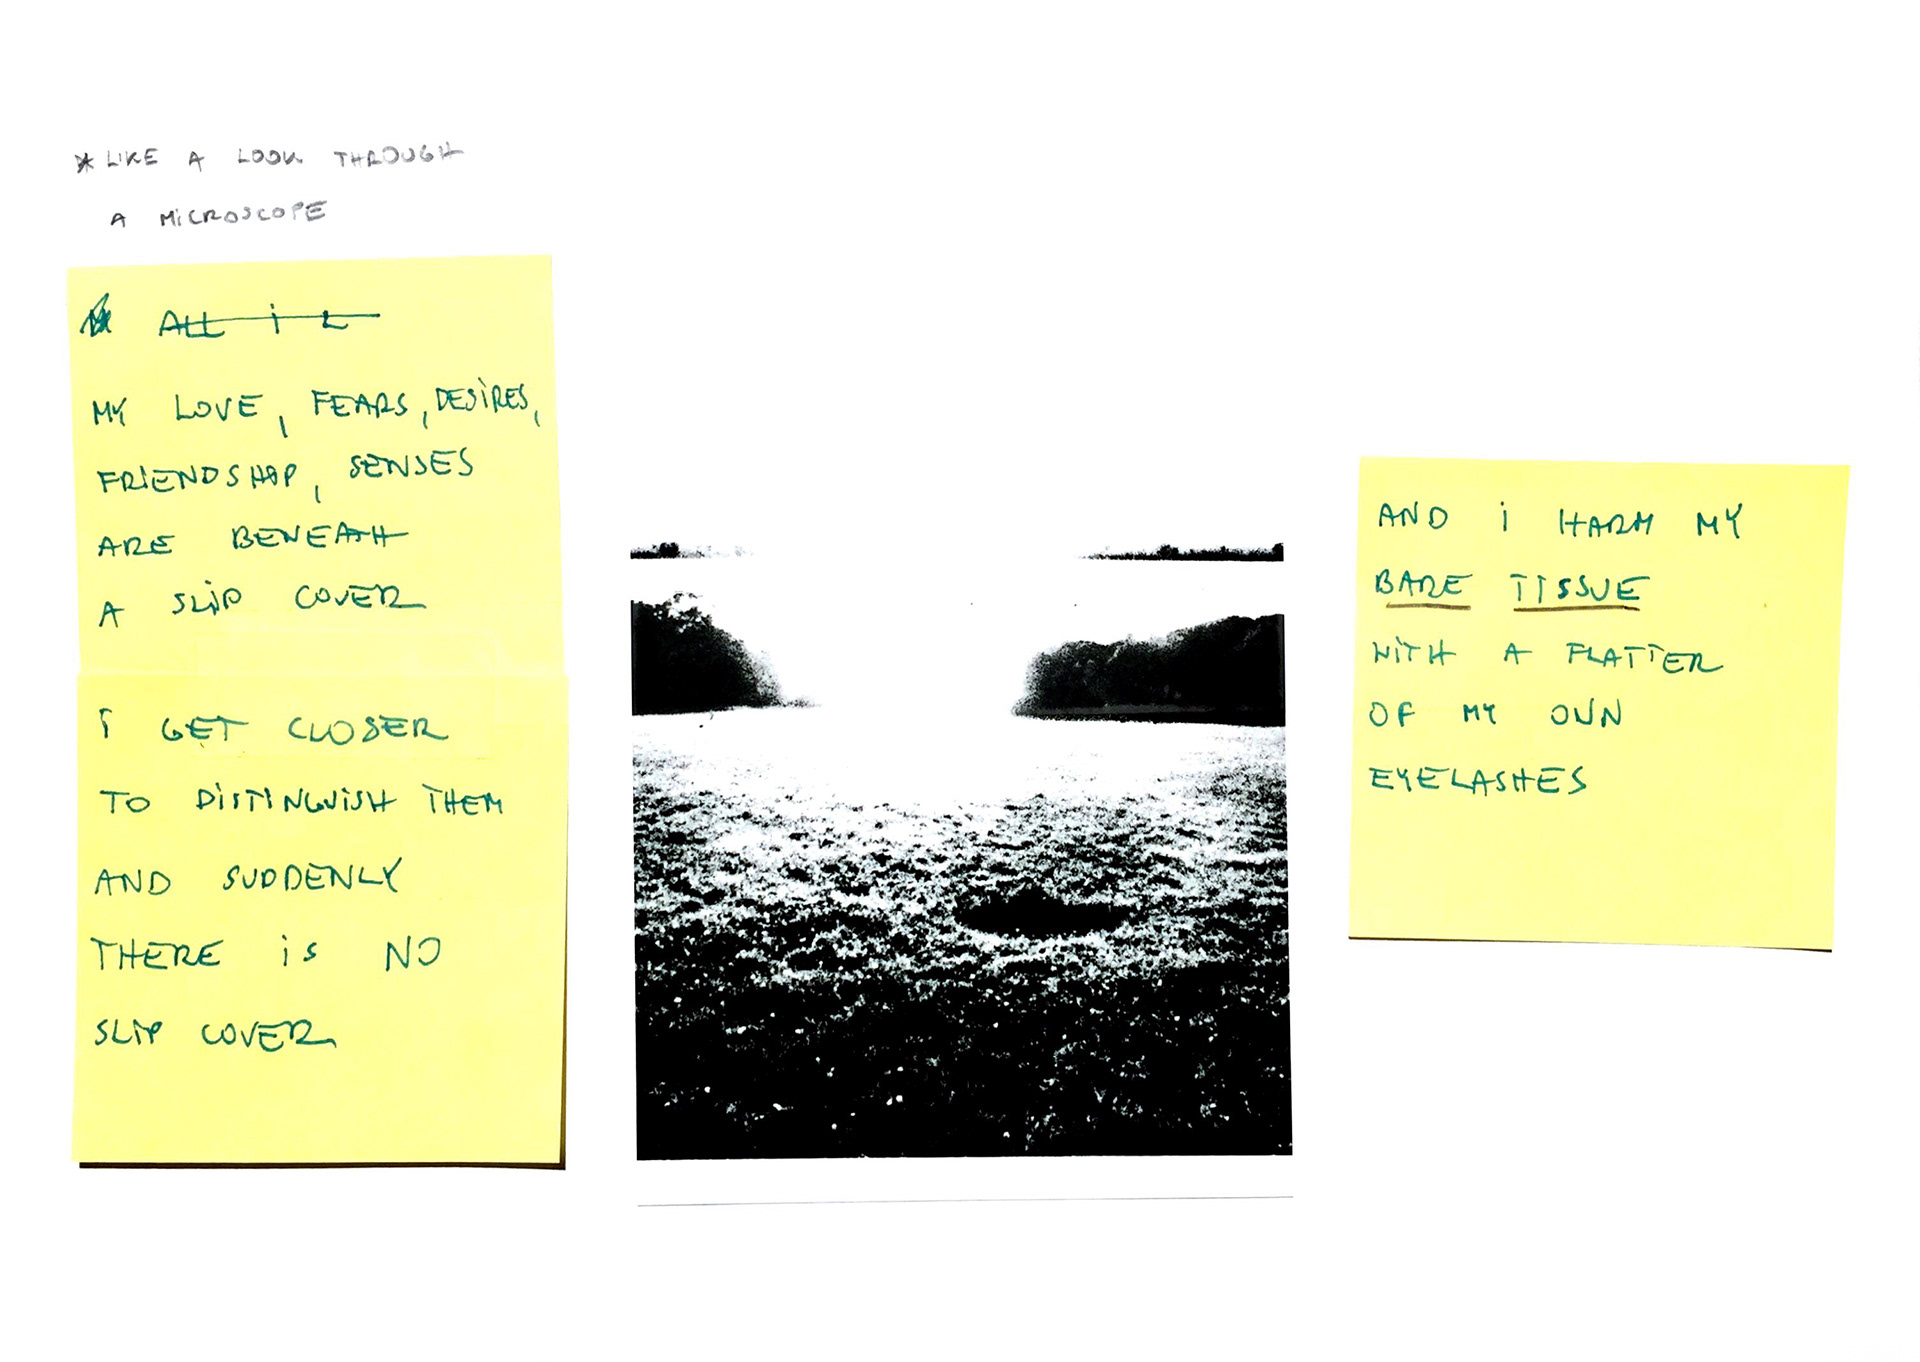 * LIKE A LOOK THROUGH
A MICROSCOPE
ALL i L
MY LOVE, FEARS, DESiRES,
FRiENDSHIP, SENSES
ARE BENEATH
A SLiP COVER
i GET CLOSER
TO DiSTINGUISH THEM
AND SUDDENLY
THERE iS NO
SLiP COVER
AND i HARM MY
BARE TISSUE
WiTH A FLATTER
OF MY OWN
EYELASHES